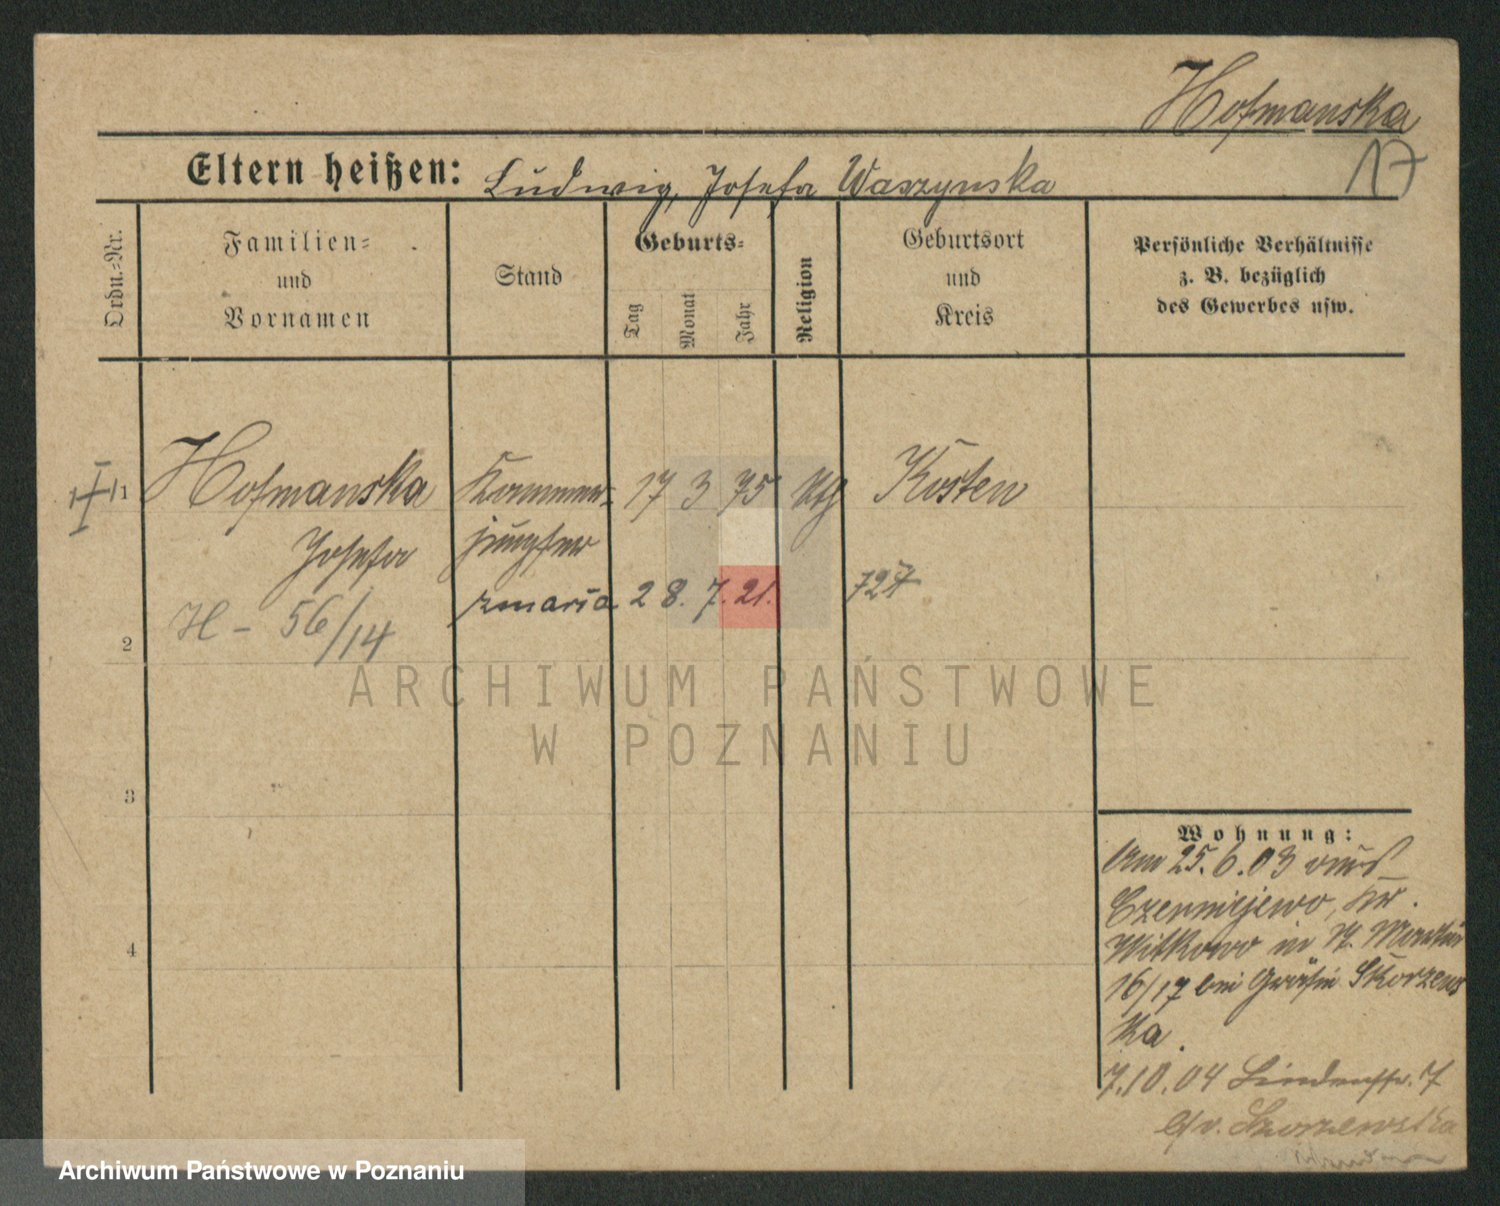 Hofmanska
17
Eltern heißen: Ludwig, Josefa Waszynska
Ordn.-Nr.
Familien-
und
Vornamen
Stand
Geburts-
Tag
Monat
Jahr
Religion
Geburtsort
und
Kreis
Persönliche Verhältnisse
z. B. bezüglich
des Gewerbes usw.
1
Hofmanska
Josefa
Kammer-
jungfer
17 3 75
kth
Kosten
zmarła 28. 7. 21.
727
H - 56/14
2
3
4
ARCHIWUM PAŃSTWOWE
W POZNANIU
Wohnung:
Am 25.6.03 aus
Czerniejewo, Kr.
Witkowo in N. Markt
16/17 bei Gräfin Skorzews
ka.
7.10.04 Lindenstr. 7
b/ v. Skorzewska
Archiwum Państwowe w Poznaniu